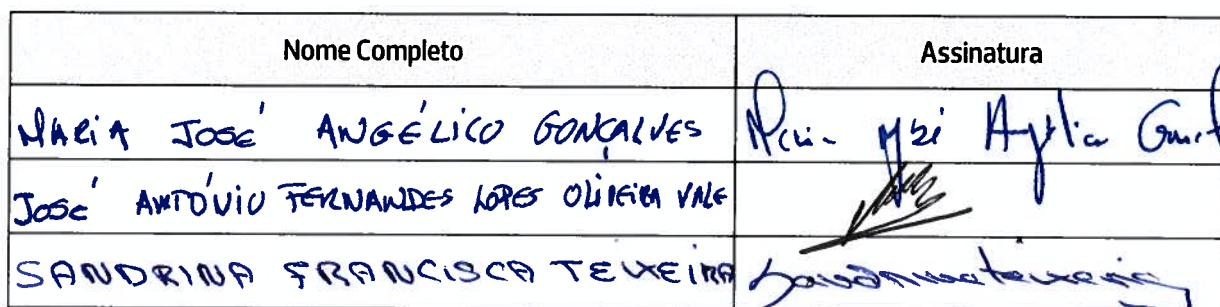 Nome Completo Assinatura
MARIA JOSÉ ANGÉLICO GONÇALVES Maria José Angélico
JOSÉ ANTÓNIO FERNANDES LOPES OLIVEIRA VALE
SANDRINA FRANCISCA TEIXEIRA Sandrina Teixeira